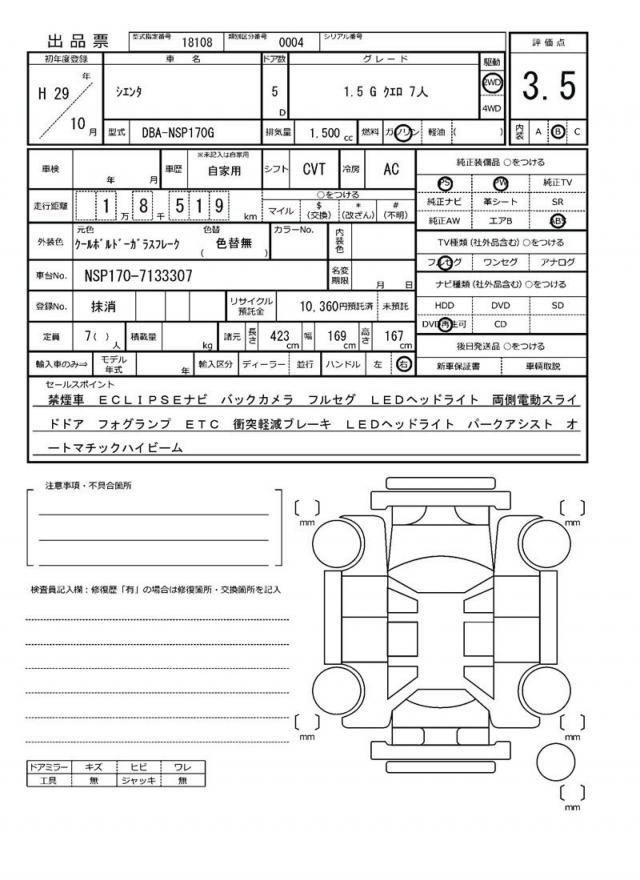 出品票 型式指定番号 18108 類別区分番号 0004 シリアル番号
評価点
3.5
内装 A B C
初年度登録 車名 ドア数 グレード 駆動
H 29 年 10 月
シエンタ 5 D 1.5 G クエロ 7人 2WD 4WD
型式 DBA-NSP170G 排気量 1.500 cc 燃料 ガソリン 軽油 ( )
車検 年 月 車歴 ※未記入は自家用 自家用 シフト CVT 冷房 AC
走行距離 1 万 8 千 5 1 9 km
○をつける
マイル $ (交換) * (改ざん) # (不明)
外装色 元色 クールボルドーガラスフレーク 色替 ( 色替無 ) カラーNo. 内装色
車台No. NSP170-7133307 名変期限 月 日
登録No. 抹消 リサイクル預託金 10,360円預託済 未預託
定員 7( ) 人 積載量 kg 諸元 長さ 423 cm 幅 169 cm 高さ 167 cm
輸入車のみ⇒ モデル年式 年 輸入区分 ディーラー 並行 ハンドル 左 右
純正装備品 ○をつける
PS PW 純正TV
純正ナビ 革シート SR
純正AW エアB ABS
TV種類(社外品含む)○をつける
フルセグ ワンセグ アナログ
ナビ種類(社外品含む)○をつける
HDD DVD SD
DVD再生可 CD
後日発送品 ○をつける
新車保証書 車輌取説
セールスポイント
禁煙車 ECLIPSEナビ バックカメラ フルセグ LEDヘッドライト 両側電動スライ
ドドア フォグランプ ETC 衝突軽減ブレーキ LEDヘッドライト パークアシスト オ
ートマチックハイビーム
注意事項・不具合箇所
検査員記入欄:修復歴「有」の場合は修復箇所・交換箇所を記入
ドアミラー キズ ヒビ ワレ
工具 無 ジャッキ 無
〔 〕 mm
〔 〕 mm
〔 〕 mm
〔 〕 mm
〔 〕 mm